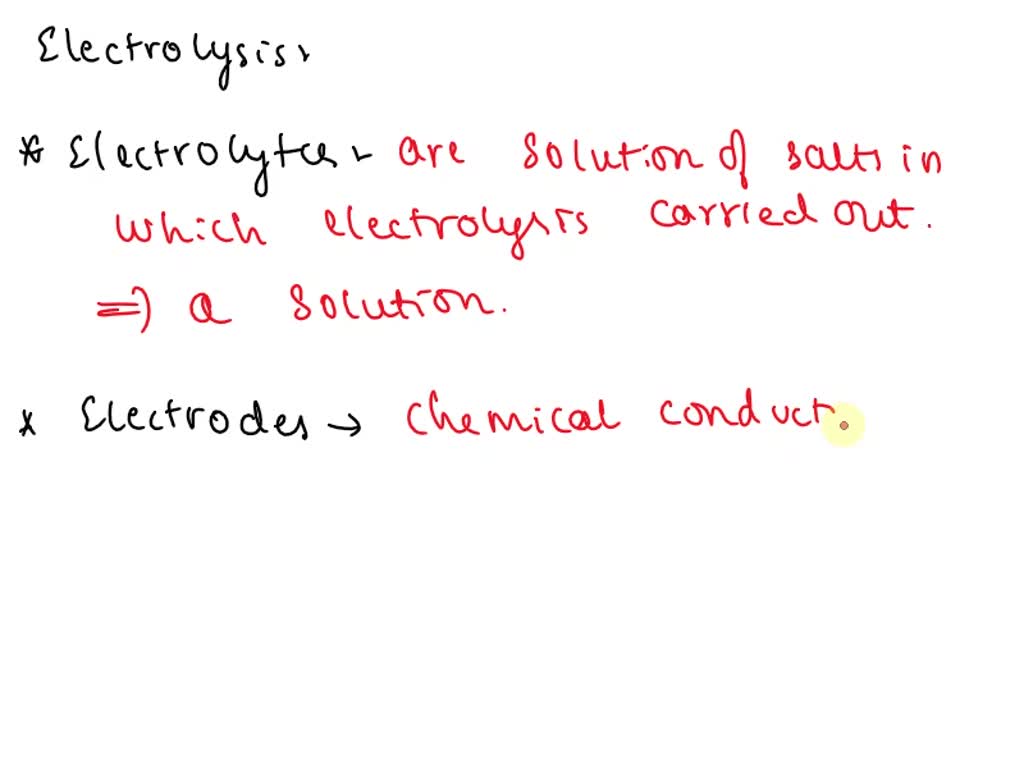 Electrolysis:
* Electrolytes - are solution of salts in
which electrolysis carried out.
=> a solution.
* Electrodes → Chemical conduct